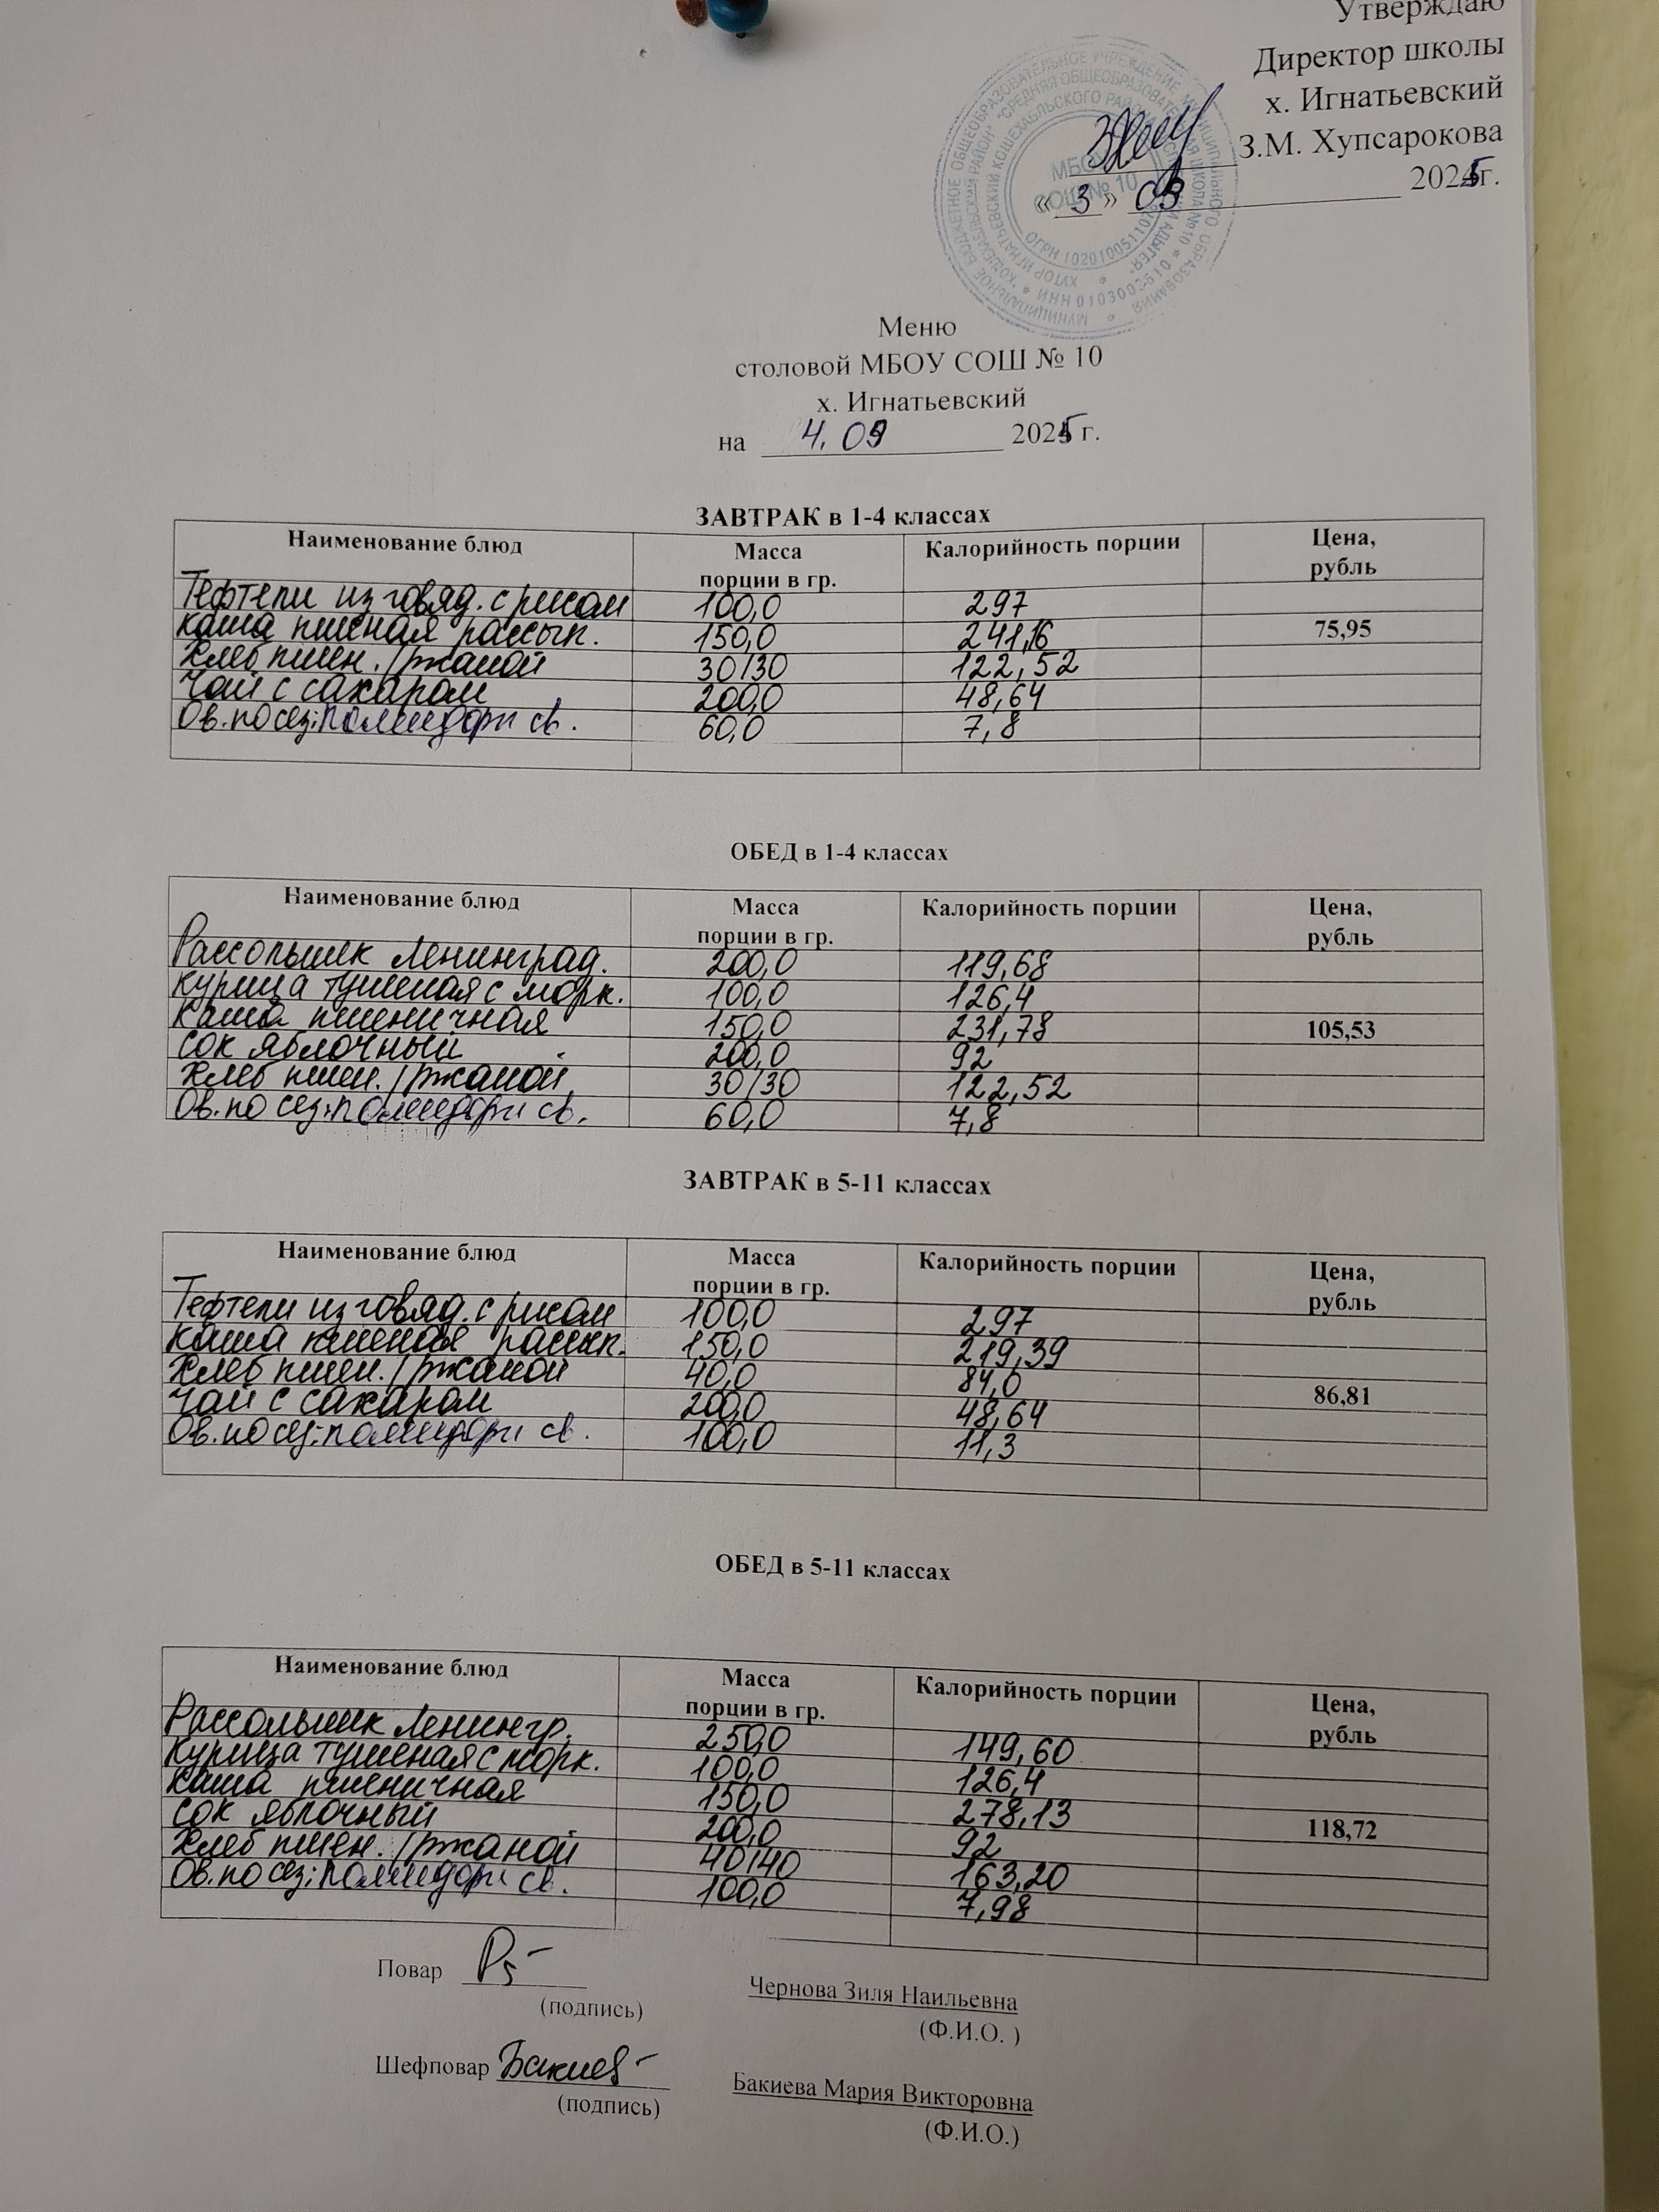 Утверждаю
Директор школы
х. Игнатьевский
З.М. Хупсарокова
«3» 09 2025г.
МБОУ
СОШ № 10
Меню
столовой МБОУ СОШ № 10
х. Игнатьевский
на 4.09 2025 г.
ЗАВТРАК в 1-4 классах
Наименование блюд Масса порции в гр. Калорийность порции Цена, рубль
Тефтели из говяд. с рисом 100,0 297
каша пшеная рассып. 150,0 241,16 75,95
Хлеб пшен./ржаной 30/30 122,52
Чай с сахаром 200,0 48,64
Ов. по сез: помидоры св. 60,0 7,8
ОБЕД в 1-4 классах
Наименование блюд Масса порции в гр. Калорийность порции Цена, рубль
Рассольник Ленинград. 200,0 119,68
курица тушеная с морк. 100,0 126,4
каша пшеничная 150,0 231,78 105,53
сок яблочный 200,0 92
Хлеб пшен./ржаной 30/30 122,52
Ов. по сез: помидоры св. 60,0 7,8
ЗАВТРАК в 5-11 классах
Наименование блюд Масса порции в гр. Калорийность порции Цена, рубль
Тефтели из говяд. с рисом 100,0 297
каша пшеная рассып. 150,0 219,39
Хлеб пшен./ржаной 40,0 84,0 86,81
Чай с сахаром 200,0 48,64
Ов. по сез: помидоры св. 100,0 11,3
ОБЕД в 5-11 классах
Наименование блюд Масса порции в гр. Калорийность порции Цена, рубль
Рассольник Ленингр. 250,0 149,60
Курица тушеная с морк. 100,0 126,4
каша пшеничная 150,0 278,13
сок яблочный 200,0 92 118,72
Хлеб пшен./ржаной 40/40 163,20
Ов. по сез: помидоры св. 100,0 7,98
Повар Чернова Зиля Наильевна
(подпись) (Ф.И.О. )
Шефповар Бакиев Бакиева Мария Викторовна
(подпись) (Ф.И.О.)